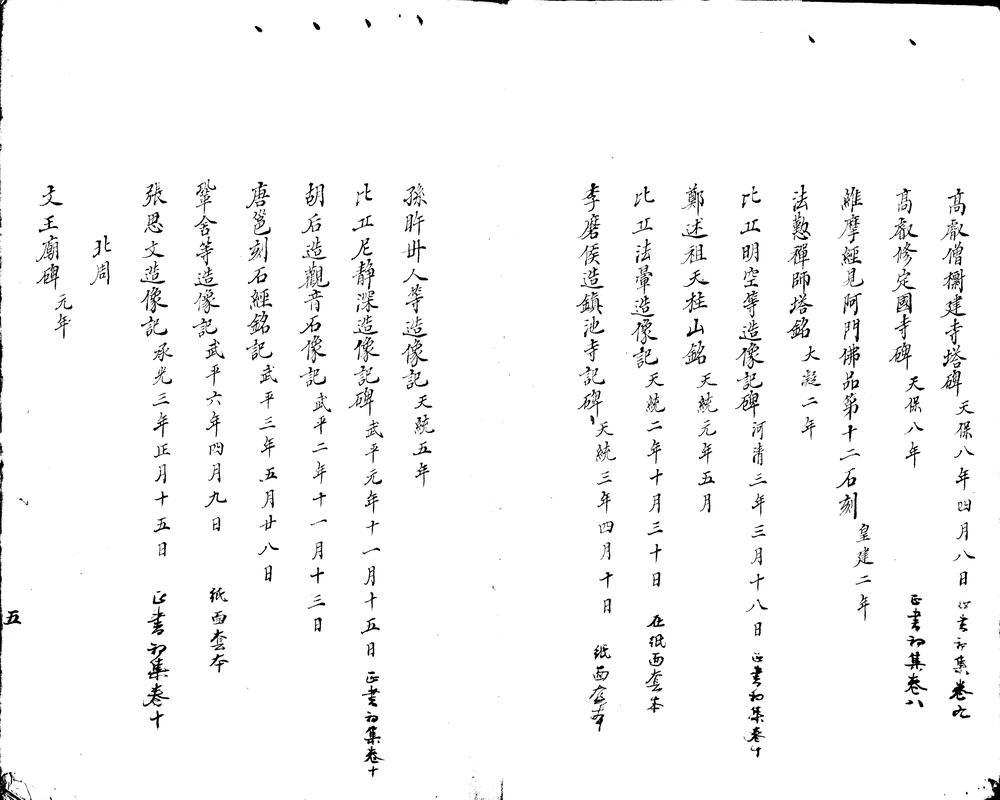 高叡僧㯹建寺塔碑 天保八年四月八日 正書初集卷九
高叡修定國寺碑 天保八年 正書初集卷八
維摩經見阿閦佛品第十二石刻 皇建二年
法懃禪師塔銘 大凝二年
比丘明空等造像記碑 河清三年三月十八日 正書初集卷十
鄭述祖天柱山銘 天統元年五月
比丘法暈造像記 天統二年十月三十日 在紙面套本
李磨侯造鎮池寺記碑 天統三年四月十日 紙面套本
孫昨卅人等造像記 天統五年
比丘尼靜深造像記碑 武平元年十一月十五日 正書初集卷十
胡后造觀音石像記 武平二年十一月十三日
唐邕刻石經銘記 武平三年五月廿八日
鞏舍等造像記 武平六年四月九日 紙面套本
張思文造像記 承光三年正月十五日 正書初集卷十
北周
文王廟碑 元年
五